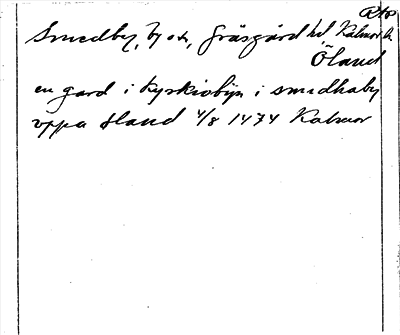 RAp
Smedby, by o sn, Gräsgård hd, Kalmar l.
Öland
en gard i kyrkiobyn i smedhaby
vppa öland 4/8 1474 Kalmar